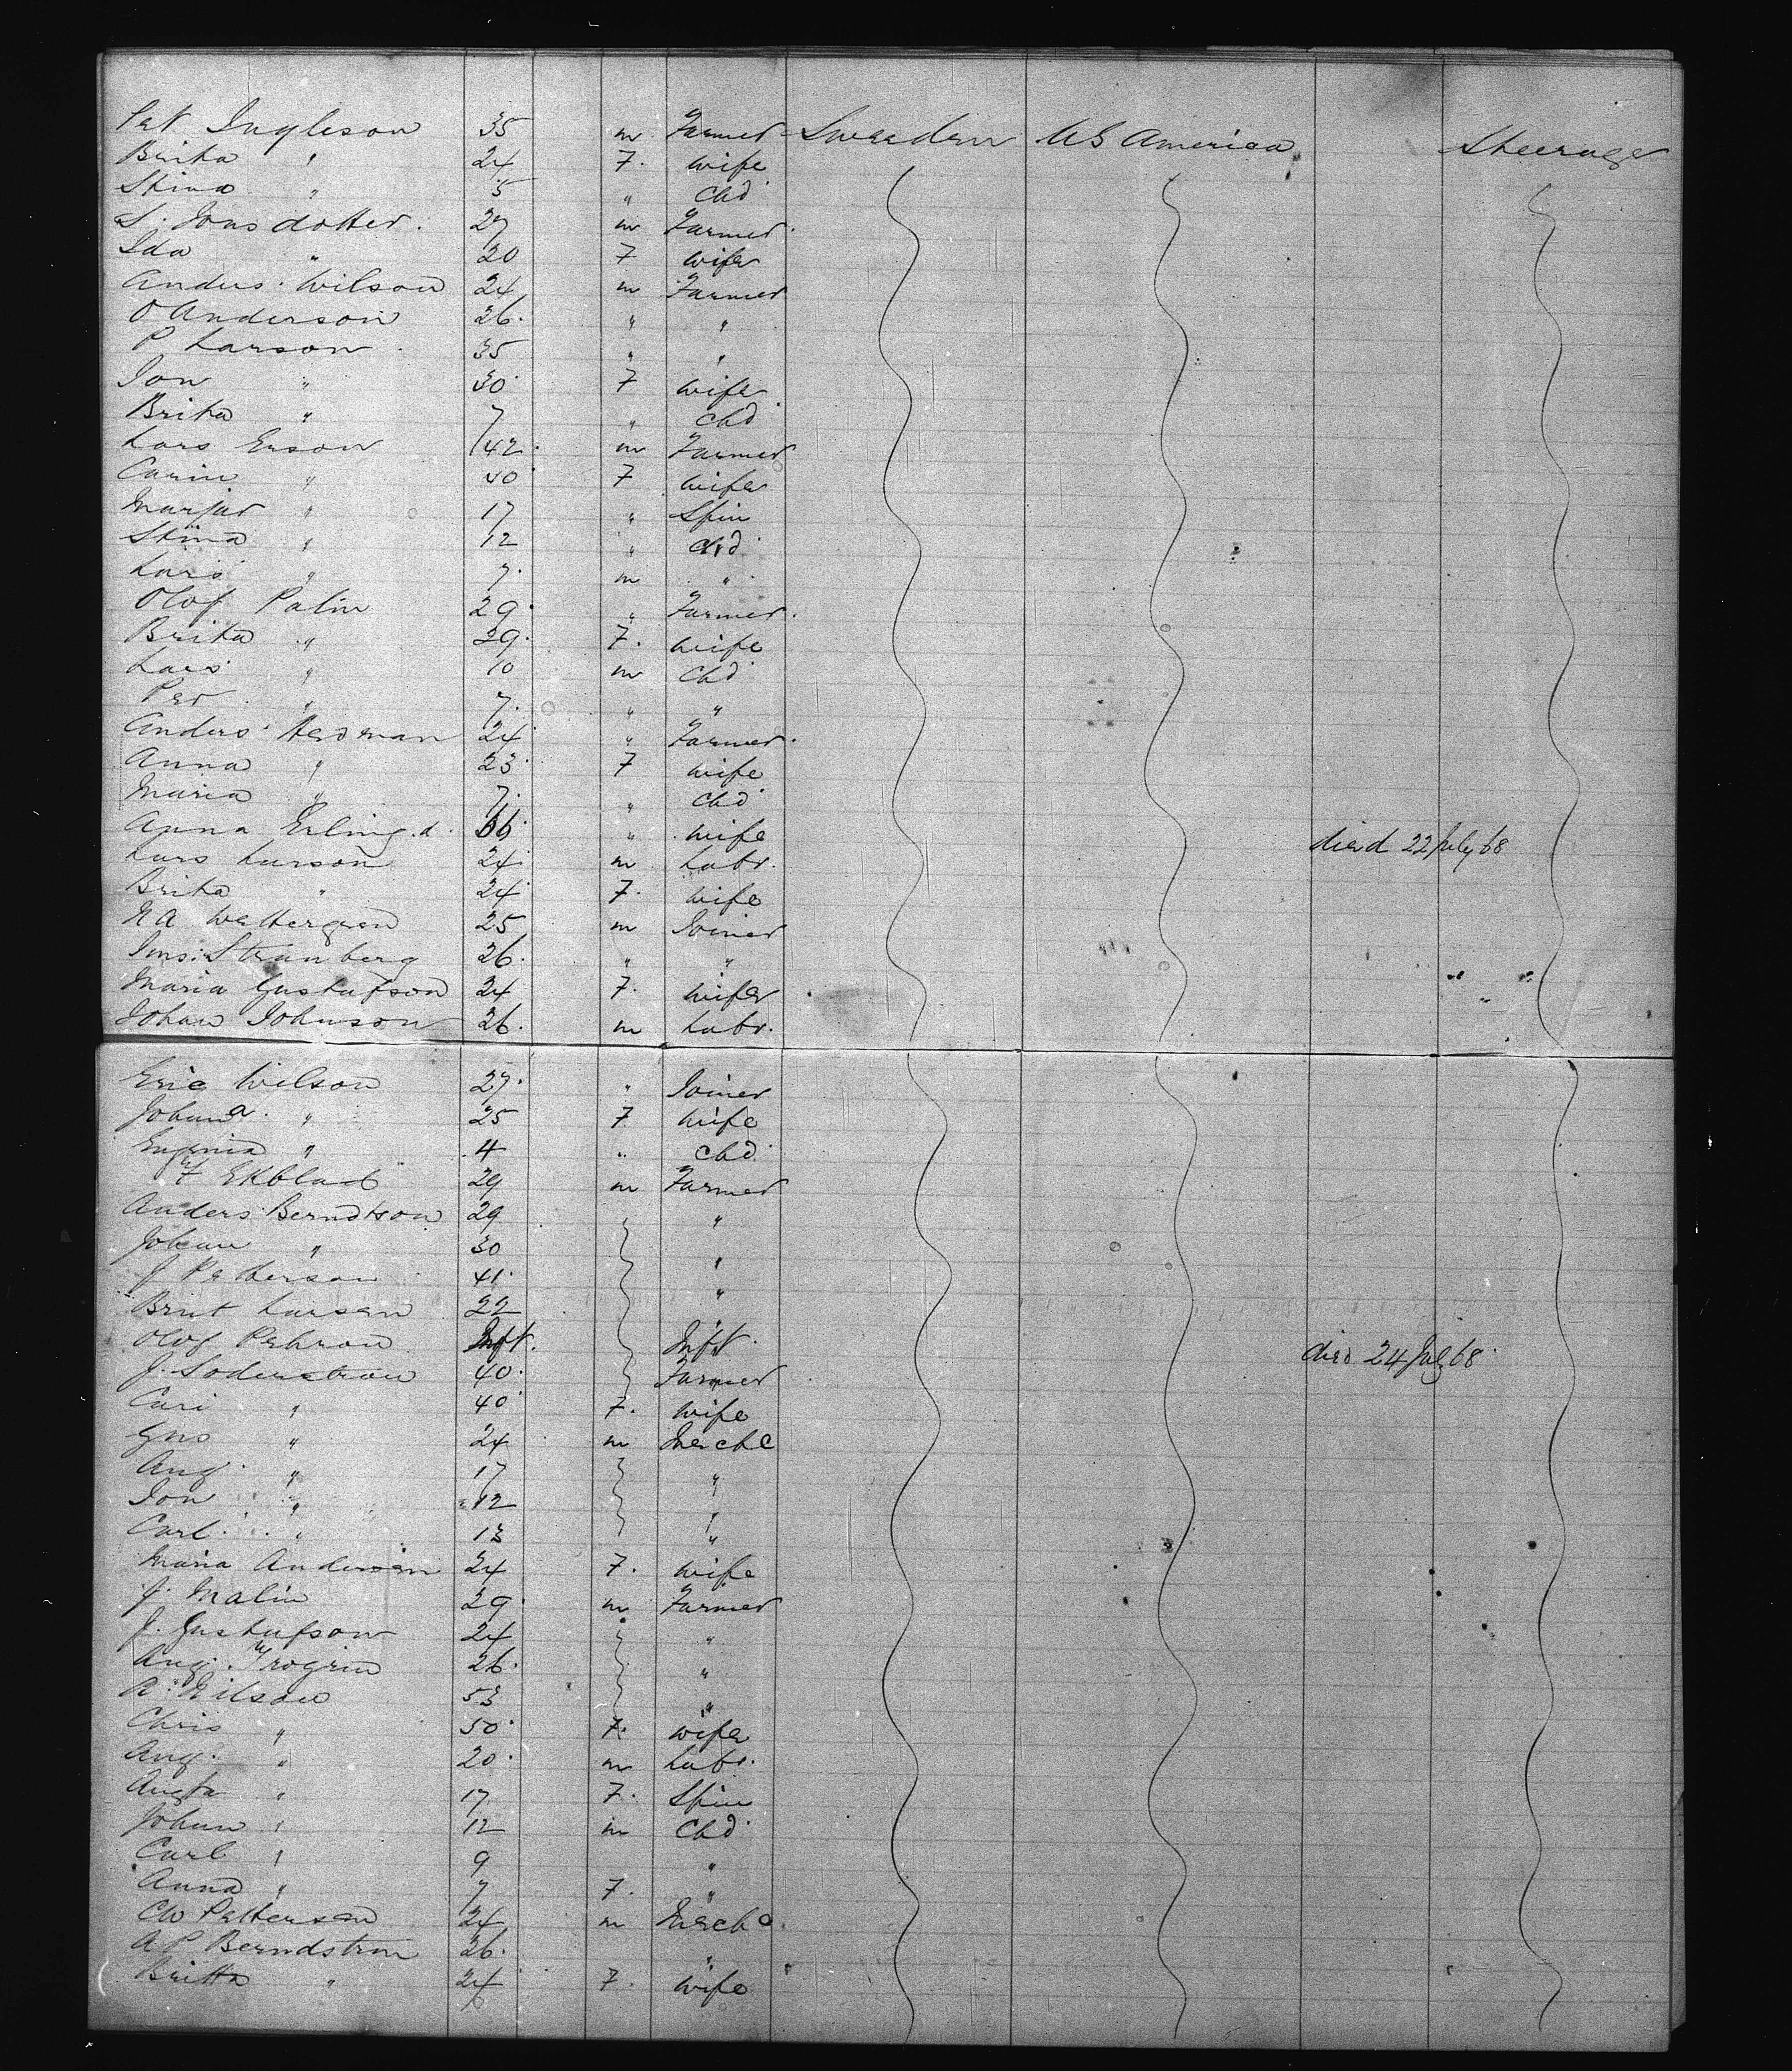 Pet Ingleson 35 m Farmer Sweeden US America Steerage
Brita " 24 F. wife
Stina " 5 " Chd
S. Jonsdotter. 27 m Farmer
Ida " 20 F wife
Anders Wilson 24 m Farmer
O Anderson 26 " "
P Larson 35 " "
Jon " 30 F wife
Brita " 7 " Chd
Lars Erson 42 m Farmer
Carin " 40 F wife
Marjar " 17 " Spin
Stina " 12 " Chd
Lars " 7 m "
Olof Palin 29 " Farmer
Brita " 29 F. wife
Lars " 10 m Chd
Per " 7 " "
Anders Hedman 24 " Farmer
Anna " 23 F wife
Maria " 7 " Chd
Anna Erling.d. 66 " wife died 22 July 68
Lars Larson 24 m Labr.
Brita " 24 F. wife
N A Wettergren 25 m Joiner
Jns. Stranberg 26 " "
Maria Gustafson 24 F. wife
Johan Johnson 26 m Labr.
Eric Wilson 27 " Joiner
Johana " 25 F wife
Eugenia " 4 " Chd
F Ekblad 29 m Farmer
Anders Berndtson 29 "
Johan " 30 "
J Petterson 41 "
Brint Larsen 22 "
Olof Pehrson Inft. Inft. died 24 July 68
J. Soderstrom 40 Farmer
Cari " 40 F. wife
Gus " 24 m Mechc
Aug. " 17 "
Jon " 12 "
Carl " 13 "
Maria Andersen 24 F. wife
J. Malin 29 m Farmer
J. Gustafson 24 "
Aug. Frogrin 26 "
A. Nilson 53 "
Chris " 50 F. wife
Aug. " 20 m Labr.
Augta " 17 F. Spin
Johan " 12 m Chd
Carl " 9 "
Anna " 7 F. "
CW Pettersen 24 m Mechc
A P Berndstrm 26 "
Britta " 24 F. wife